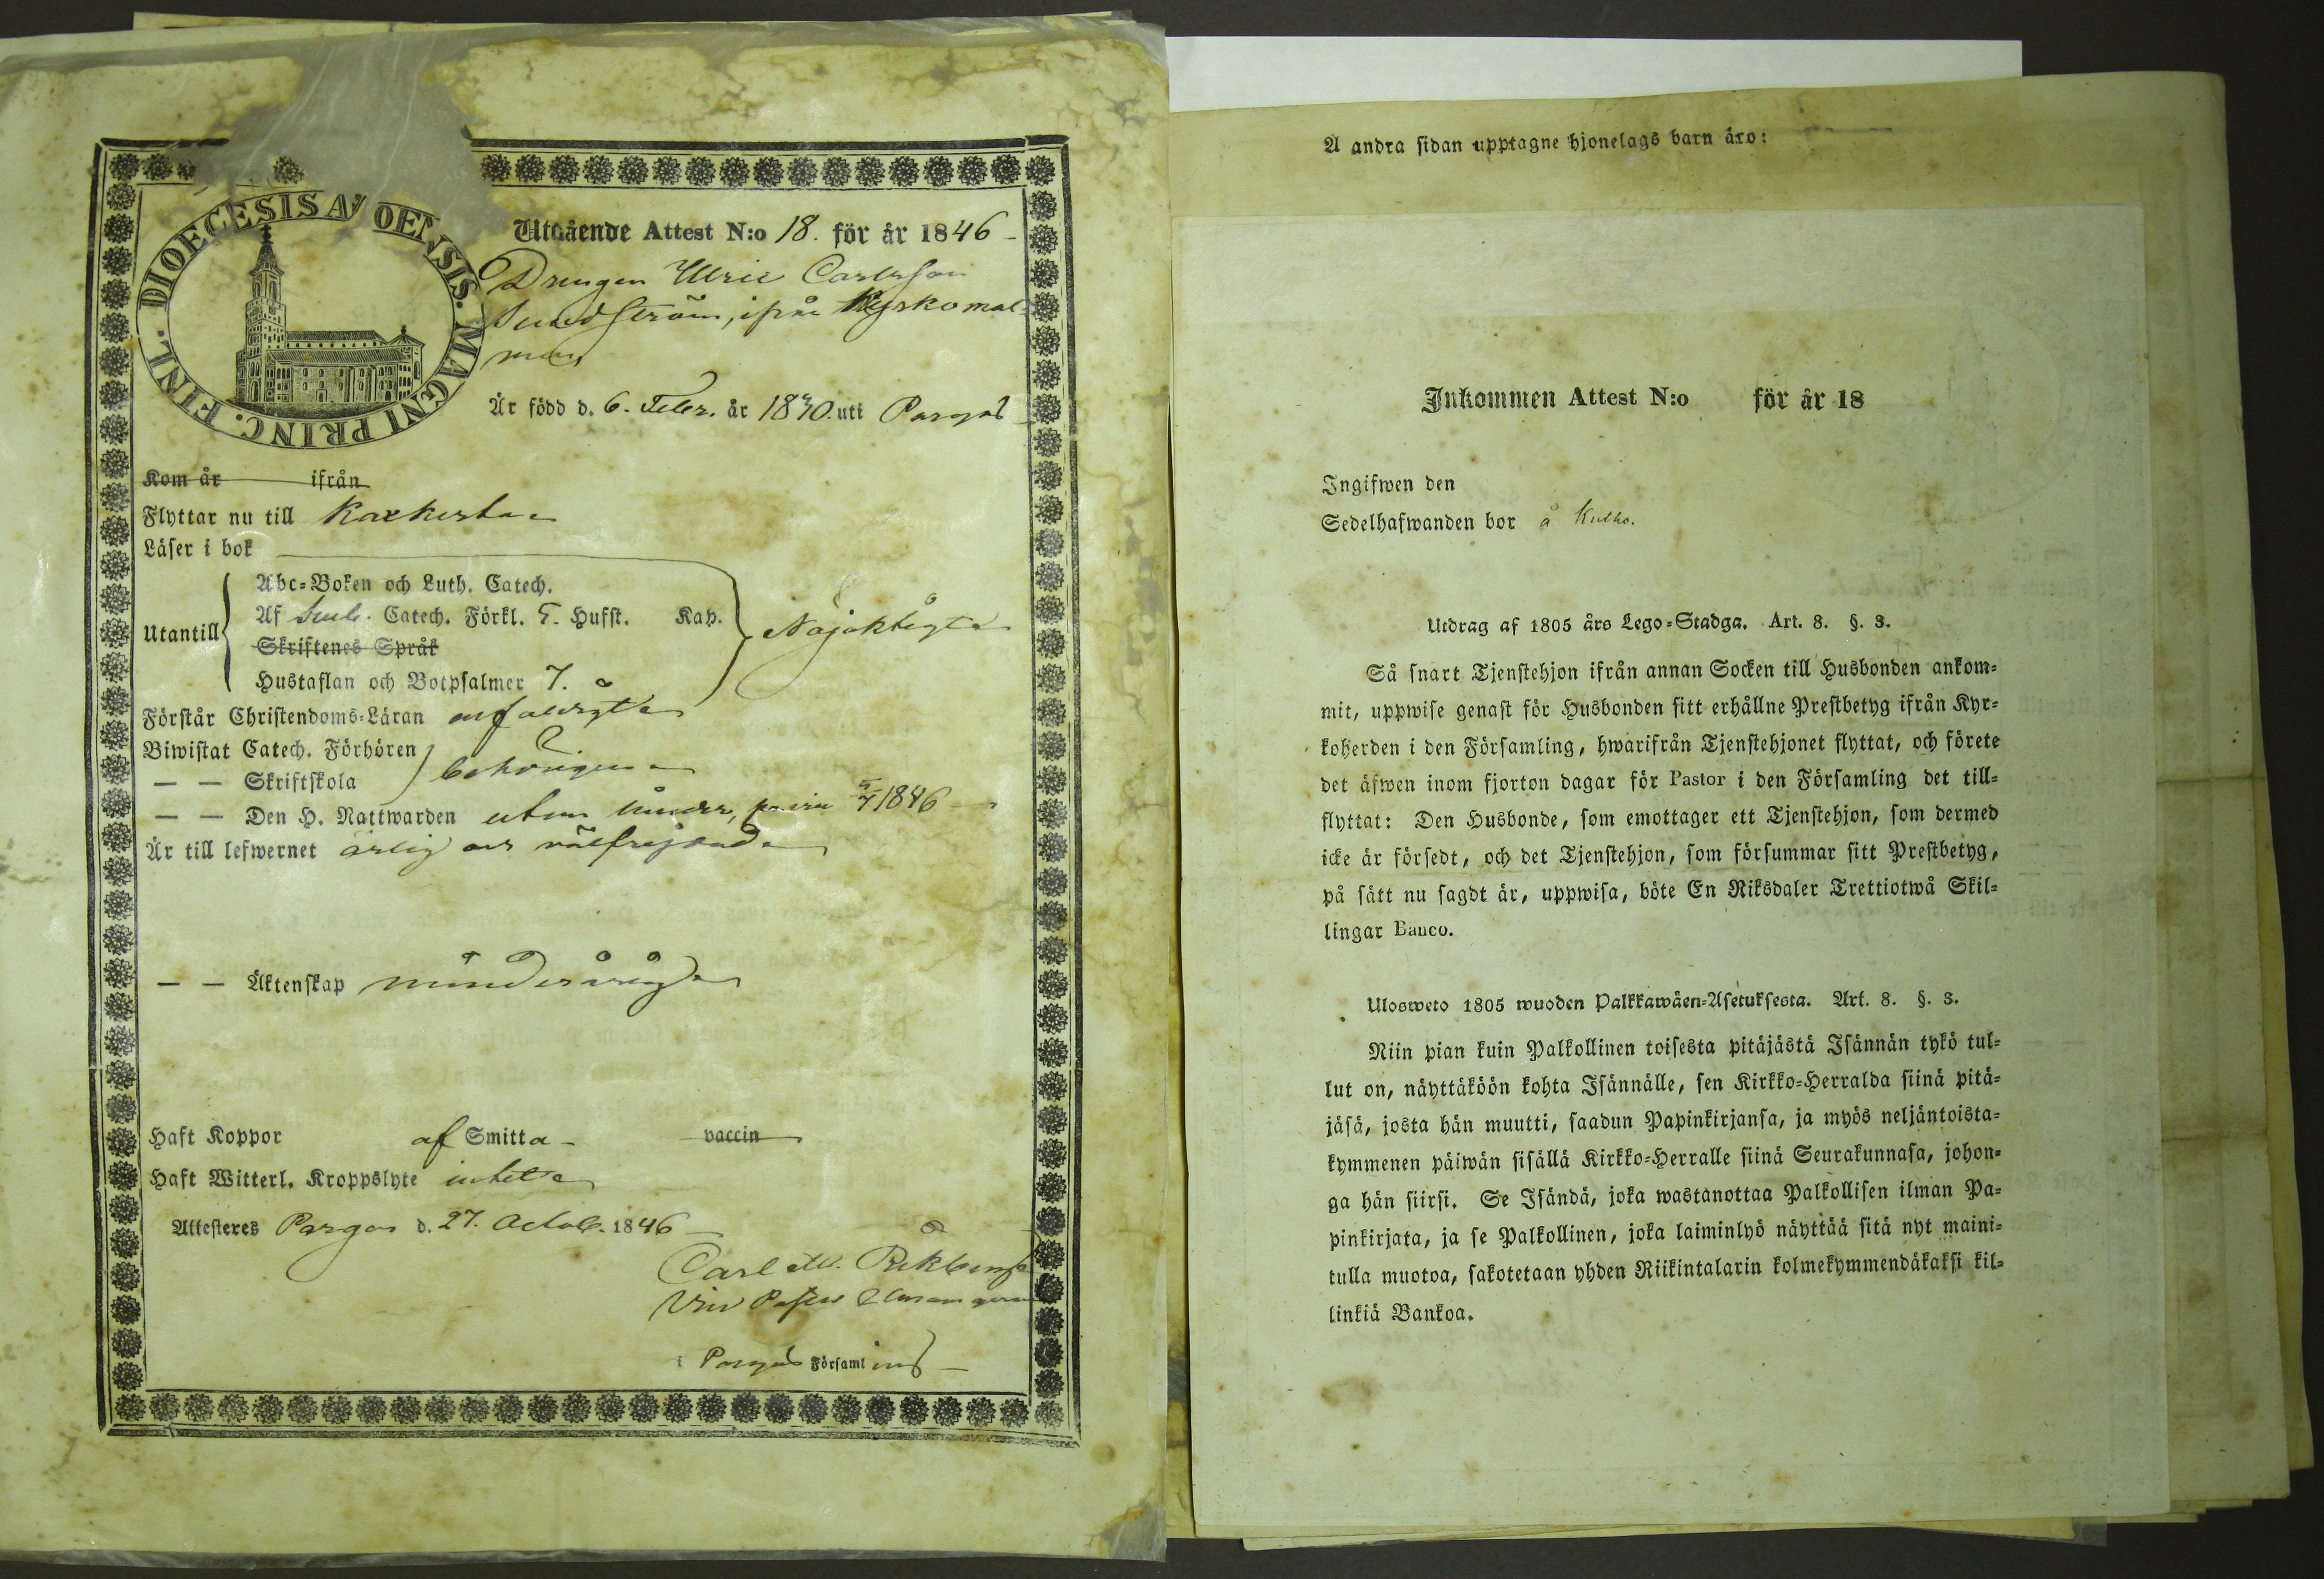 DIOECESIS A OENSIS. MAGNI PRINC. FINL.
Utgående Attest N:o 18. för år 1846
Drengen Ulric Carlsson
Sundström, ifrån Kyrkomal-
men
Är född d. 6. Febr. år 1830. uti Pargas
Kom år ifrån
Flyttar nu till Karkusta
Läser i bok
Abc-Boken och Luth. Catech.
Utantill Af Sveb. Catech. Förkl. 5. Hufst. Kap. Nöjaktigt
Skriftenes Språk
Hustaflan och Botpsalmer 7.
Förstår Christendoms-Läran enfaldigt
Biwistat Catech. Förhören
— — Skriftskola behörigen
— — Den H. Nattwarden utom länder, 5/7 1846
Är till lefwernet ärlig och välfrejdad
— — Äktenskap minderårig
Haft Koppor af Smitta vaccin
Haft Witterl. Kroppslyte intet
Attesteres Pargas d. 27. Octob. 1846
Carl
Vice Pastor
i Pargas Församl ing
A andra sidan upptagne hjonelags barn äro:
Inkommen Attest N:o för år 18
Ingifwen den
Sedelhafwanden bor å Kulho.
Utdrag af 1805 års Lego-Stadga. Art. 8. §. 3.
Så snart Tjenstehjon ifrån annan Socken till Husbonden ankom-
mit, uppwise genast för Husbonden sitt erhållne Prestbetyg ifrån Kyr-
koherden i den Församling, hwarifrån Tjenstehjonet flyttat, och förete
det äfwen inom fjorton dagar för Pastor i den Församling det till-
flyttat: Den Husbonde, som emottager ett Tjenstehjon, som dermed
icke är försedt, och det Tjenstehjon, som försummar sitt Prestbetyg,
på sätt nu sagdt är, uppwisa, böte En Riksdaler Trettiotwå Skil-
lingar Banco.
Ulosweto 1805 wuoden Palkkawäen-Asetuksesta. Art. 8. §. 3.
Niin pian kuin Palkollinen toisesta pitäjästä Isännän tykö tul-
lut on, näyttäköön kohta Isännälle, sen Kirkko-Herralda siinä pitä-
jäsä, josta hän muutti, saadun Papinkirjansa, ja myös neljäntoista-
kymmenen päiwän sisällä Kirkko-Herralle siinä Seurakunnasa, johon-
ga hän siirsi. Se Isändä, joka wastanottaa Palkollisen ilman Pa-
pinkirjata, ja se Palkollinen, joka laiminlyö näyttää sitä nyt maini-
tulla muotoa, sakotetaan yhden Riikintalarin kolmekymmendäkaksi kil-
linkiä Bankoa.